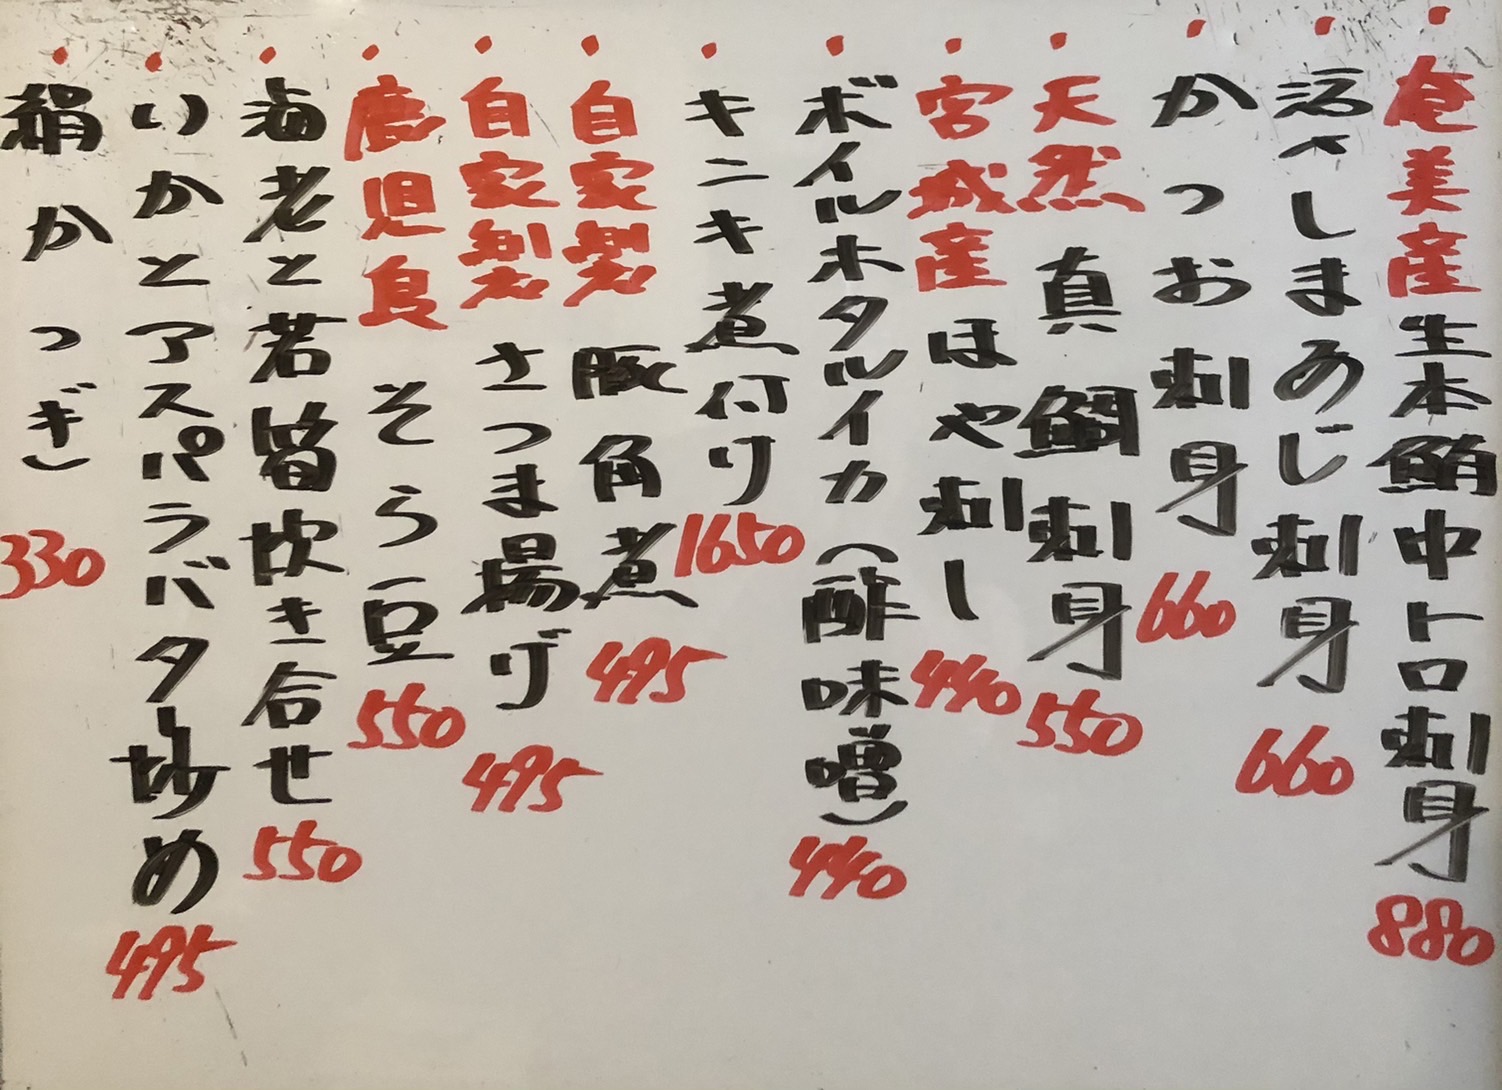 ・奄美産生本鮪中トロ刺身 880
・活〆しまあじ刺身 660
・かつお刺身 660
・天然 真鯛刺身 550
・宮城産ほや刺し 440
・ボイルホタルイカ(酢味噌) 440
・キンキ煮付け 1650
・自家製 豚角煮 495
・自家製 さつま揚げ 495
・鹿児島 そら豆 550
・海老と若筍炊き合せ 550
・いかとアスパラバター炒め 495
・絹かつぎ 330